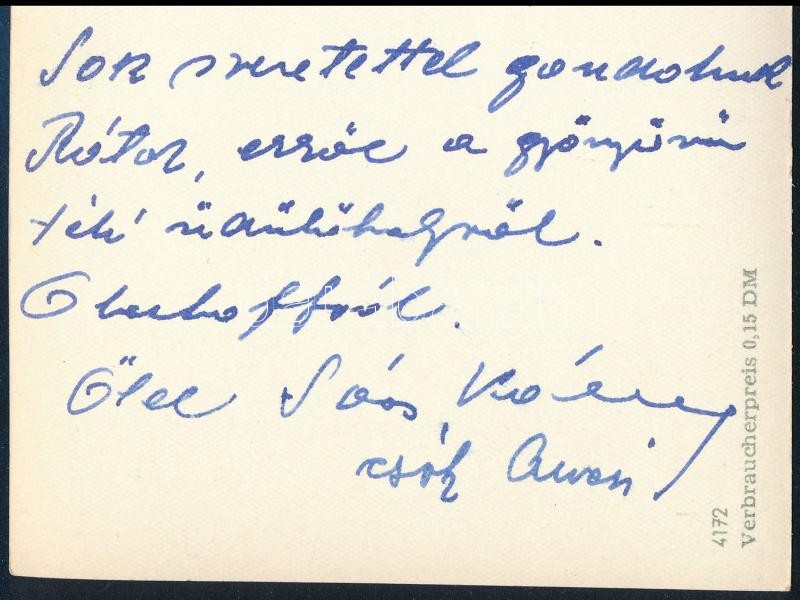 Sok szeretettel gondolunk
Rátok, erről a gyönyörű
téli üdülőhelyről.
Oberhoffról.
Ölel Soós
csók
4172
Verbraucherpreis 0,15 DM